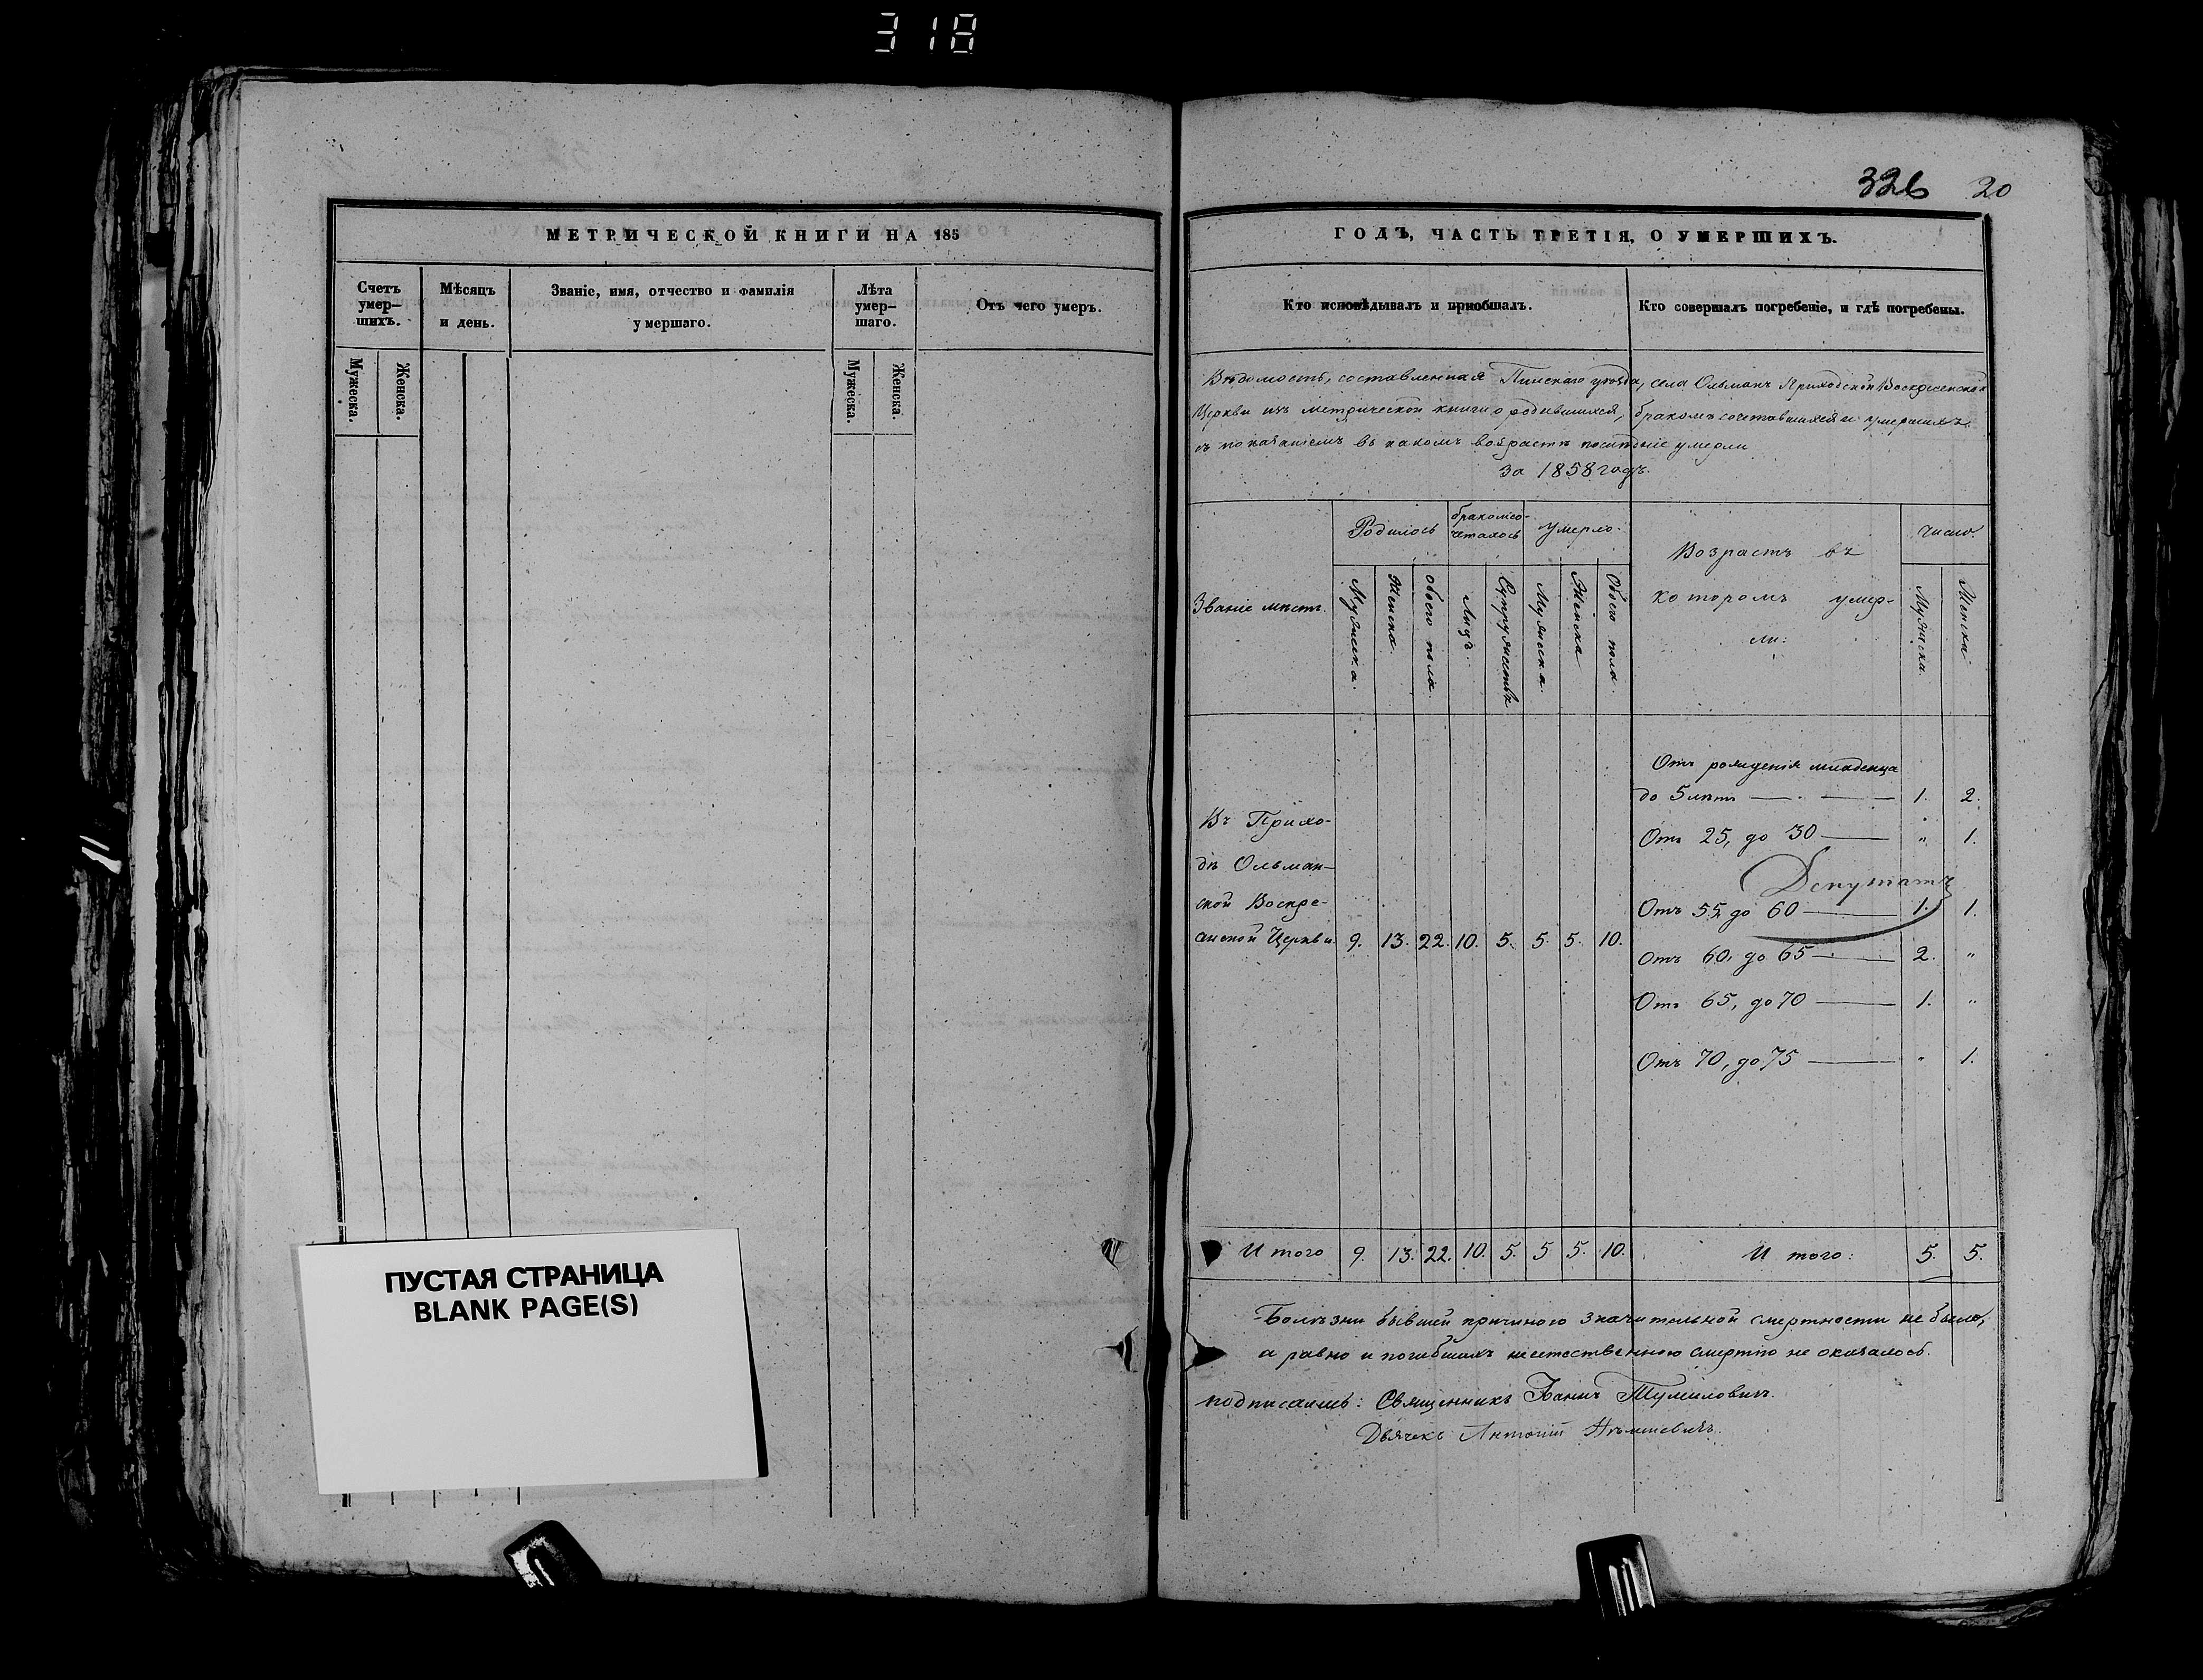 318
326 20
МЕТРИЧЕСКОЙ КНИГИ НА 185
Счетъ умер-шихъ.
Мѣсяцъ и день.
Званіе, имя, отчество и фамилія умершаго.
Лѣта умер-шаго.
Отъ чего умеръ.
Мужеска.
Женска.
Мужеска.
Женска.
ПУСТАЯ СТРАНИЦА
BLANK PAGE(S)
ГОДЪ, ЧАСТЬ ТРЕТІЯ, О УМЕРШИХЪ.
Кто исповѣдывалъ и приобщалъ.
Кто совершалъ погребеніе, и гдѣ погребены.
Вѣдомость, составленная Пинскаго уѣзда, села Ольманъ Приходской Воскресенской
Церкви изъ метрической книги о родившихся, бракомъ сочетавшихся и умершихъ
съ показаніемъ въ какомъ возрастѣ послѣдніе умерли
за 1858 годъ.
Званіе мѣстъ.
Родилось
бракомсо-
четалось
умерло.
Возрастъ въ
которомъ умер-
ли:
число.
Мужеска.
Женска.
обоего пола.
Лицъ.
Супружествъ
Мужеска.
Женска
Обоего пола
Мужеска.
Женска
Въ Прихо-
дѣ Ольман-
ской Воскре-
санской Церкви. 9. 13. 22. 10. 5. 5. 5. 10.
Отъ рожденія младенца
до 5 лѣтъ — 1. 2.
Отъ 25, до 30 — " 1.
Депутатъ
Отъ 55, до 60 — 1. 1.
Отъ 60, до 65 — 2. "
Отъ 65, до 70 — 1. "
Отъ 70, до 75 — " 1.
Итого 9. 13. 22. 10. 5. 5 5. 10.
Итого: 5. 5.
Болѣзни бывшей причиною значительной смертности не было,
а равно и погибшихъ неестественною смертію не оказалось.
подписались: Священникъ Іоаннъ Тумилович.
Дьячекъ Антоній